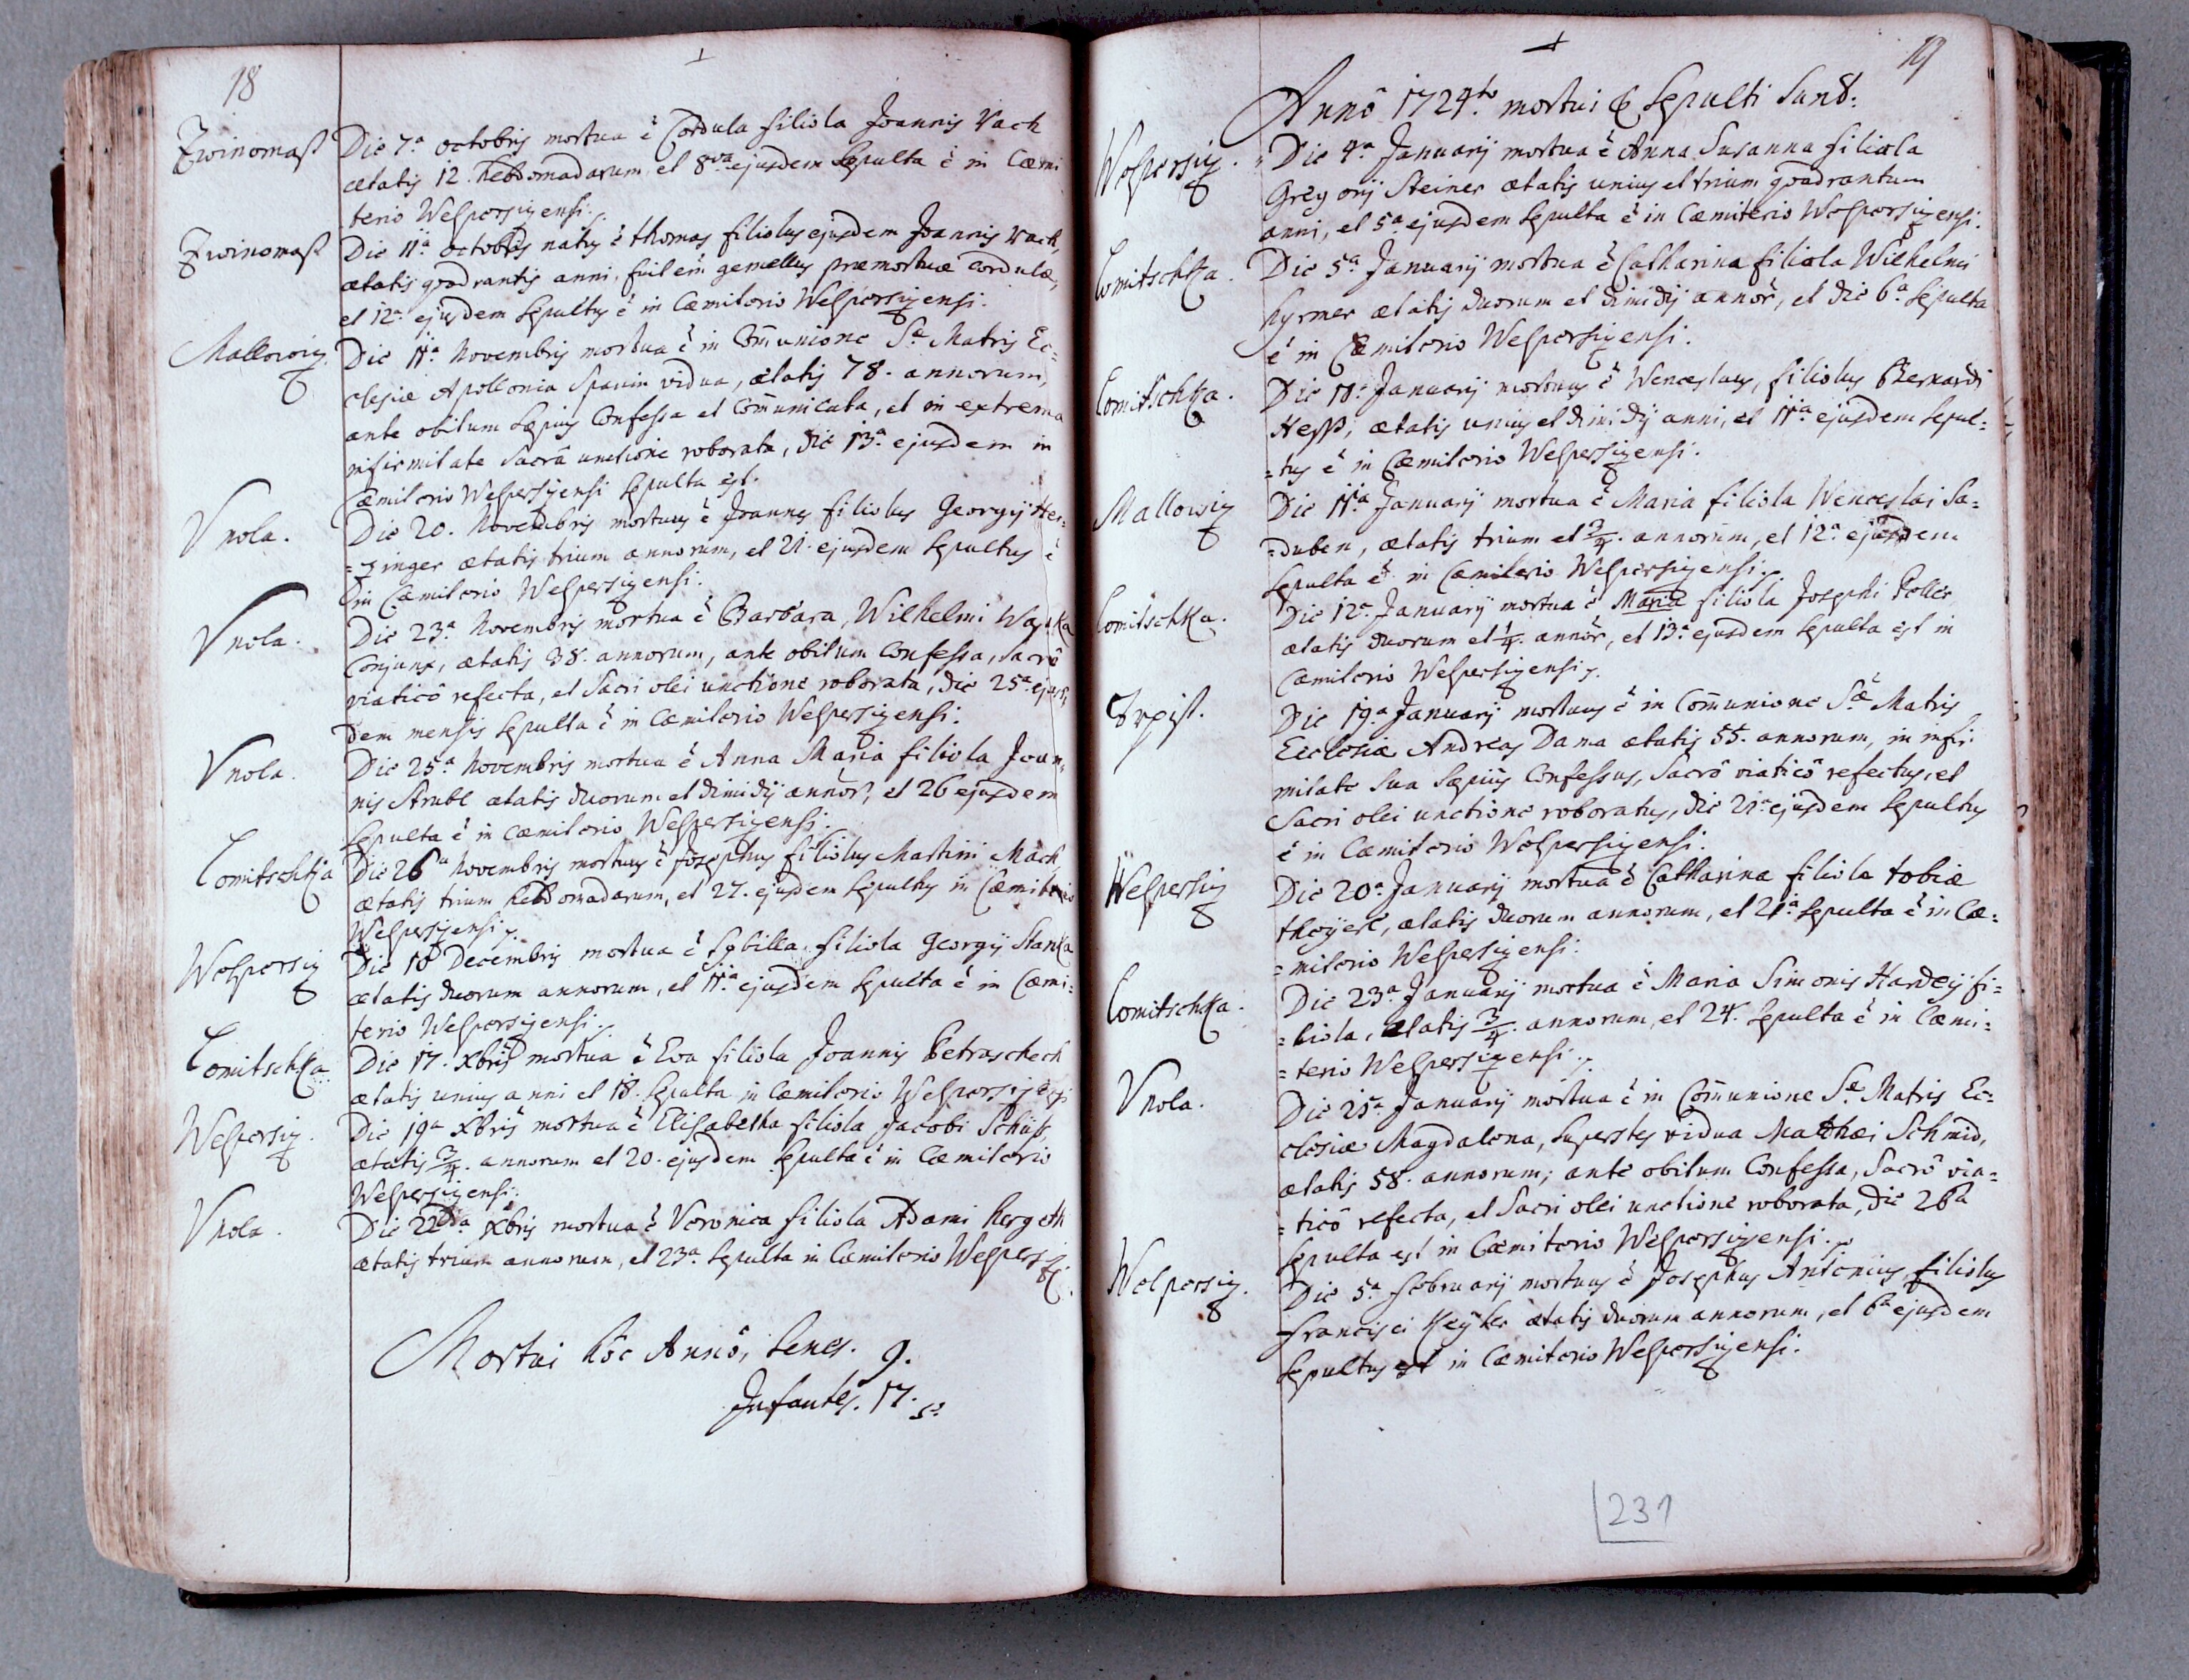 18
Zwinomaß
Die 7.a octobris mortua ē Cordula filiola Joannis Vach
ætatis 12. hebdomadarum et 8va ejusdem sepulta ē in Cæmi
terio Welpersizensi.
Zwinomaß
Die 11a octobris natus ē thomas filiolus ejusdem Joannis Vach,
ætatis quadrantis anni, fuit em̄ gemellus præmortuæ Cordulæ,
et 12a ejusdem sepultus ē in Cæmiterio Welpersizensi.
Mallowiz
Die 11a Novembris mortua ē in Com̄unione Sæ Matris Ec=
clesiæ Apollonia Spanin vidua, ætatis 78. annorum,
ante obitum sæpius Confessa et Com̄unicata, et in extrema
infirmitate sacrâ unctione roborata, die 13a ejusdem in
Cæmiterio Welpersizensi sepulta est.
Vnola.
Die 20. Novembris mortuus ē Joannes filiolus Georgij Her=
=zinger ætatis trium annorum, et 21. ejusdem sepultus ē
in Cæmiterio Welpersizensi.
Vnola.
Die 23.a Novembris mortua ē Barbara, Wilhelmi
Conjunx, ætatis 38. annorum, ante obitum Confessa, sacrô
viaticô refecta, et sacri olei unctione roborata, die 25a ejus=
dem mensis sepulta ē in Cæmiterio Welpersizensi.
Vnola.
Die 25.a Novembris mortua ē Anna Maria filiola Joan=
nis Strubl ætatis duorum et dimidij annor̄, et 26 ejusdem
sepulta ē in Cæmiterio Welpersizensi.
Comitschka
Die 26a Novembris mortuus ē Josephus filiolus Martini Mach
ætatis trium hebdomadarum, et 27. ejusdem sepultus in Cæmiterio
Welpersizensi.
Welpersiz
Die 10 Decembris mortua ē Sybilla filiola Georgij Stanka
ætatis duorum annorum, et 11a ejusdem sepulta ē in Cæmi=
terio Welpersizensi.
Comitschka
Die 17. Xbris mortua ē Eva filiola Joannis Petraschech
ætatis unius anni et 18. sepulta in Cæmiterio Welpersizensi
Welpersiz.
Die 19a Xbris mortua ē Elisabetha filiola Jacobi Schuß,
ætatis 3/4. annorum et 20. ejusdem sepulta ē in Cæmiterio
Welpersizensi.
Vnola.
Die 22da Xbris mortua ē Veronica filiola Adami Hergeth
ætatis trium annorum, et 23.a sepulta in Cæmiterio Welpersiz.
Mortui hôc Annô, senes. 9.
Infantes. 17.
19
Annô 1724to mortui & sepulti sunt:
Welpersiz.
Die 4.a Januarij mortua ē Anna Susanna filiola
Gregorij Steiner ætatis unius et trium quadrantum
anni, et 5a ejusdem sepulta ē in Cæmiterio Welpersizensi.
Comitschka.
Die 5a Januarij mortua ē Catharina filiola Wilhelmi
Hyrmer ætatis duorum et dimidij annor̄, et die 6a sepulta
ē in Cæmiterio Welpersizensi.
Comitschka.
Die 10a Januarij mortuus ē Wenceslaus, filiolus Bernardi
Hesß, ætatis unius et dimidij anni, et 11a ejusdem sepul=
=tus ē in Cæmiterio Welpersizensi.
Mallowiz
Die 11a Januarij mortua ē Maria filiola Wenceslai Sa=
=duben, ætatis trium et 3/4. annorum, et 12a ejusdem
sepulta ē in Cæmiterio Welpersizensi.
Comitschka.
Die 12a Januarij mortua ē Maria filiola Josephi Poller
ætatis duorum et 1/4. annor̄, et 13a ejusdem sepulta est in
Cæmiterio Welpersizensi.
Trpist.
Die 19a Januarij mortuus ē in Com̄unione Sæ Matris
Ecclesiæ Andreas Dama ætatis 55. annorum, in infir
mitate sua sæpius Confessus, sacrô viaticô refectus, et
sacri olei unctione roboratus, die 21a ejusdem sepultus
ē in Cæmiterio Welpersizensi.
Welpersiz
Die 20a Januarij mortua ē Catharina filiola tobiæ
theyerl, ætatis duorum annorum, et 21a sepulta ē in Cæ=
=miterio Welpersizensi.
Comitschka.
Die 23a Januarij mortua ē Maria Simonis Hardey fi=
=liola, ætatis 3/4. annorum, et 24. sepulta ē in Cæmi=
=terio Welpersizensi.
Vnola.
Die 25a Januarij mortua ē in Com̄unione Sæ Matris Ec=
clesiæ Magdalena, superstes vidua Matthæi Schmid,
ætatis 58. annorum; ante obitum Confessa, sacrô via=
=ticô refecta, et sacri olei unctione roborata, die 26a
sepulta est in Cæmiterio Welpersizensi.
Welpersiz.
Die 5a februarij mortuus ē Josephus Antonius filiolus
Francisci Keyler ætatis duorum annorum, et 6a ejusdem
sepultus est in Cæmiterio Welpersizensi.
231